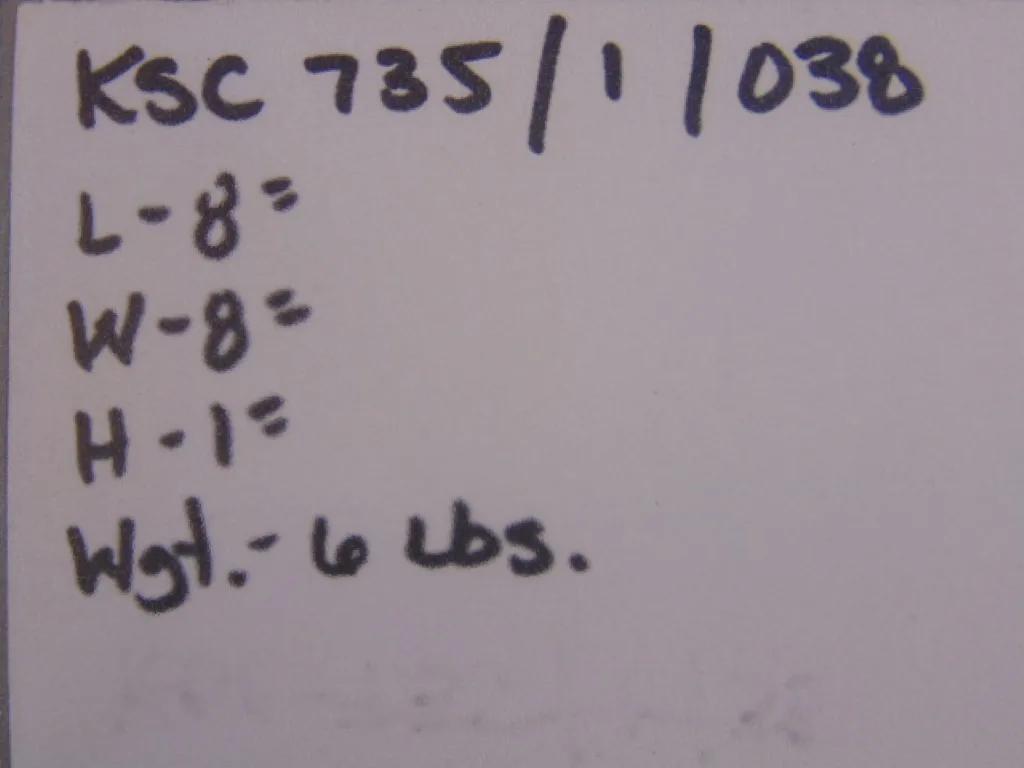 KSC 735/1/038
L-8"
W-8"
H-1"
Wgt.-6 Lbs.